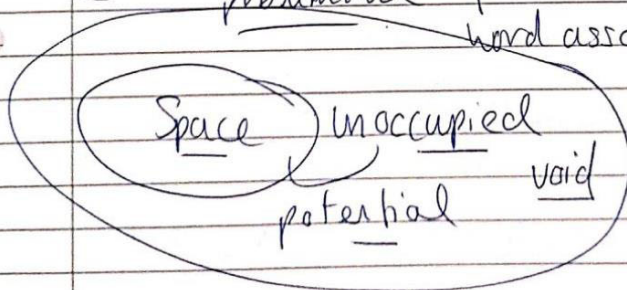 word asso
Space unoccupied
void
potential